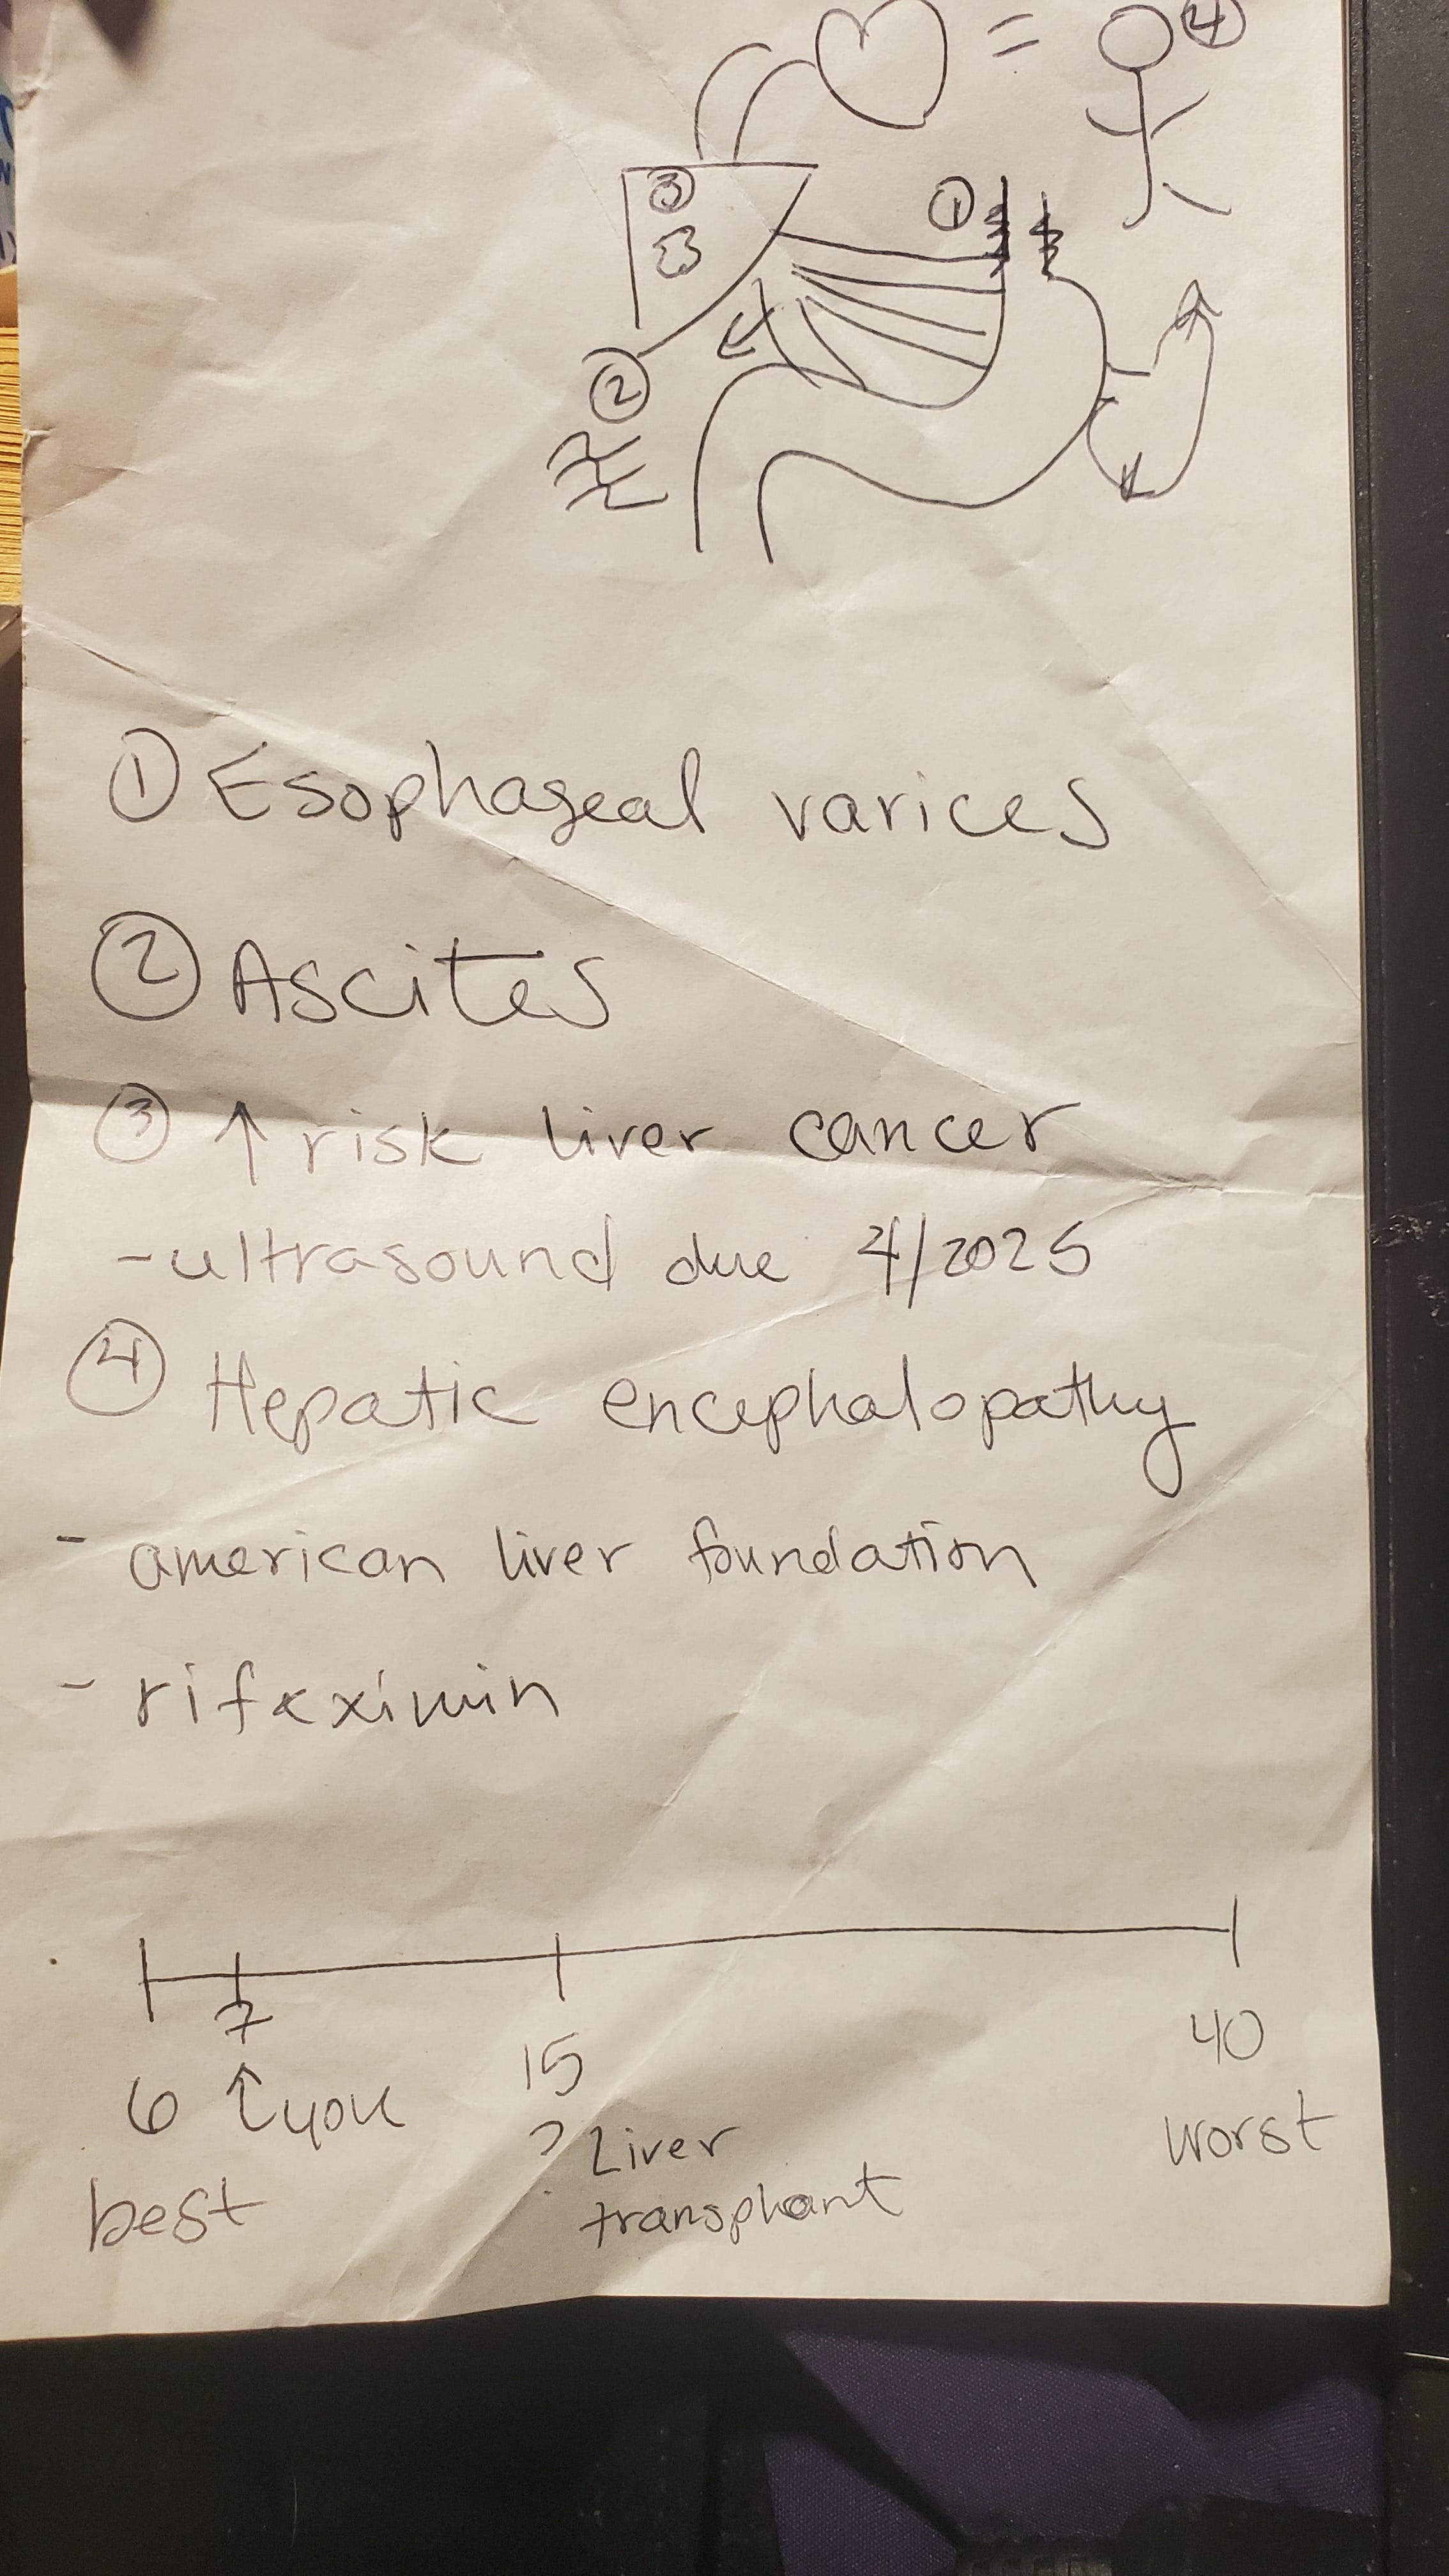 = 4
3
1
2
① Esophageal varices
② Ascites
③ ↑ risk liver cancer
- ultrasound due 4/2025
④ Hepatic encephalopathy
- american liver foundation
- rifaximin
7
15
40
6 ↑ you
? Liver
worst
best
transplant